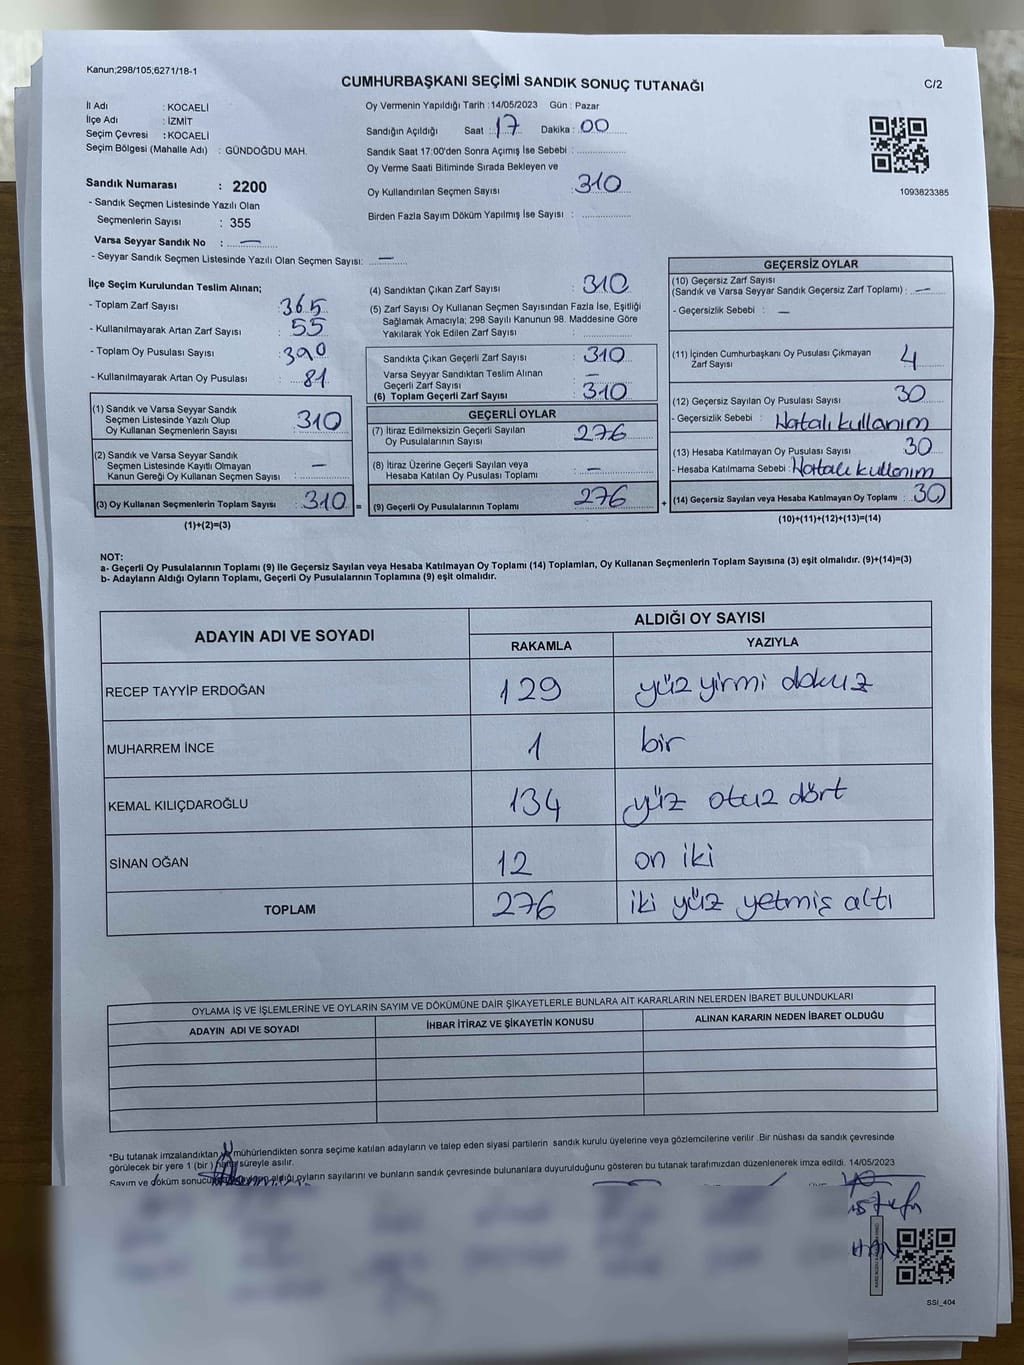 Kanun;298/105;6271/18-1
CUMHURBAŞKANI SEÇİMİ SANDIK SONUÇ TUTANAĞI
C/2
İl Adı : KOCAELİ
İlçe Adı : İZMİT
Seçim Çevresi : KOCAELİ
Seçim Bölgesi (Mahalle Adı) : GÜNDOĞDU MAH.
Sandık Numarası : 2200
- Sandık Seçmen Listesinde Yazılı Olan
Seçmenlerin Sayısı : 355
Varsa Seyyar Sandık No : —
- Seyyar Sandık Seçmen Listesinde Yazılı Olan Seçmen Sayısı: —
Oy Vermenin Yapıldığı Tarih :14/05/2023 Gün : Pazar
Sandığın Açıldığı Saat : 17 Dakika : 00
Sandık Saat 17:00'den Sonra Açımış İse Sebebi :
Oy Verme Saati Bitiminde Sırada Bekleyen ve
Oy Kullandırılan Seçmen Sayısı : 310
Birden Fazla Sayım Döküm Yapılmış İse Sayısı :
1093823385
İlçe Seçim Kurulundan Teslim Alınan;
- Toplam Zarf Sayısı : 365
- Kullanılmayarak Artan Zarf Sayısı : 55
- Toplam Oy Pusulası Sayısı : 390
- Kullanılmayarak Artan Oy Pusulası : 81
(1) Sandık ve Varsa Seyyar Sandık
Seçmen Listesinde Yazılı Olup
Oy Kullanan Seçmenlerin Sayısı : 310
(2) Sandık ve Varsa Seyyar Sandık
Seçmen Listesinde Kayıtlı Olmayan
Kanun Gereği Oy Kullanan Seçmen Sayısı : —
(3) Oy Kullanan Seçmenlerin Toplam Sayısı : 310 =
(1)+(2)=(3)
(4) Sandıktan Çıkan Zarf Sayısı : 310
(5) Zarf Sayısı Oy Kullanan Seçmen Sayısından Fazla İse, Eşitliği
Sağlamak Amacıyla; 298 Sayılı Kanunun 98. Maddesine Göre
Yakılarak Yok Edilen Zarf Sayısı :
Sandıkta Çıkan Geçerli Zarf Sayısı : 310
Varsa Seyyar Sandıktan Teslim Alınan
Geçerli Zarf Sayısı : —
(6) Toplam Geçerli Zarf Sayısı : 310
GEÇERLİ OYLAR
(7) İtiraz Edilmeksizin Geçerli Sayılan
Oy Pusulalarının Sayısı : 276
(8) İtiraz Üzerine Geçerli Sayılan veya
Hesaba Katılan Oy Pusulası Toplamı : —
(9) Geçerli Oy Pusulalarının Toplamı : 276 +
GEÇERSİZ OYLAR
(10) Geçersiz Zarf Sayısı
(Sandık ve Varsa Seyyar Sandık Geçersiz Zarf Toplamı) : —
- Geçersizlik Sebebi : —
(11) İçinden Cumhurbaşkanı Oy Pusulası Çıkmayan
Zarf Sayısı : 4
(12) Geçersiz Sayılan Oy Pusulası Sayısı : 30
- Geçersizlik Sebebi : Hatalı kullanım
(13) Hesaba Katılmayan Oy Pusulası Sayısı : 30
- Hesaba Katılmama Sebebi : Hatalı kullanım
(14) Geçersiz Sayılan veya Hesaba Katılmayan Oy Toplamı : 30
(10)+(11)+(12)+(13)=(14)
NOT:
a- Geçerli Oy Pusulalarının Toplamı (9) ile Geçersiz Sayılan veya Hesaba Katılmayan Oy Toplamı (14) Toplamları, Oy Kullanan Seçmenlerin Toplam Sayısına (3) eşit olmalıdır. (9)+(14)=(3)
b- Adayların Aldığı Oyların Toplamı, Geçerli Oy Pusulalarının Toplamına (9) eşit olmalıdır.
ADAYIN ADI VE SOYADI
ALDIĞI OY SAYISI
RAKAMLA YAZIYLA
RECEP TAYYİP ERDOĞAN 129 yüz yirmi dokuz
MUHARREM İNCE 1 bir
KEMAL KILIÇDAROĞLU 134 yüz otuz dört
SİNAN OĞAN 12 on iki
TOPLAM 276 iki yüz yetmiş altı
OYLAMA İŞ VE İŞLEMLERİNE VE OYLARIN SAYIM VE DÖKÜMÜNE DAİR ŞİKAYETLERLE BUNLARA AİT KARARLARIN NELERDEN İBARET BULUNDUKLARI
ADAYIN ADI VE SOYADI İHBAR İTİRAZ VE ŞİKAYETİN KONUSU ALINAN KARARIN NEDEN İBARET OLDUĞU
*Bu tutanak imzalandıktan mühürlendikten sonra seçime katılan adayların ve talep eden siyasi partilerin sandık kurulu üyelerine veya gözlemcilerine verilir .Bir nüshası da sandık çevresinde
görülecek bir yere 1 (bir ) süreyle asılır.
Sayım ve döküm aldığı oyların sayılarını ve bunların sandık çevresinde bulunanlara duyurulduğunu gösteren bu tutanak tarafımızdan düzenlenerek imza edildi. 14/05/2023
SSI_404